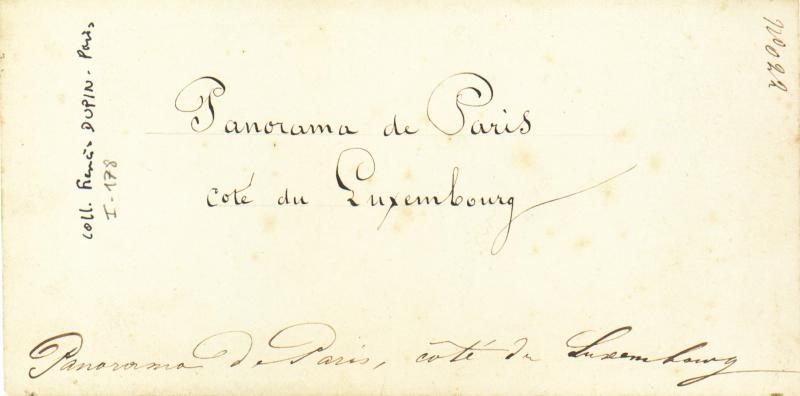 Panorama de Paris
coté du Luxembourg
Panorama De Paris, côté du Luxembourg
coll. Francis DUPIN - Paris
I-178